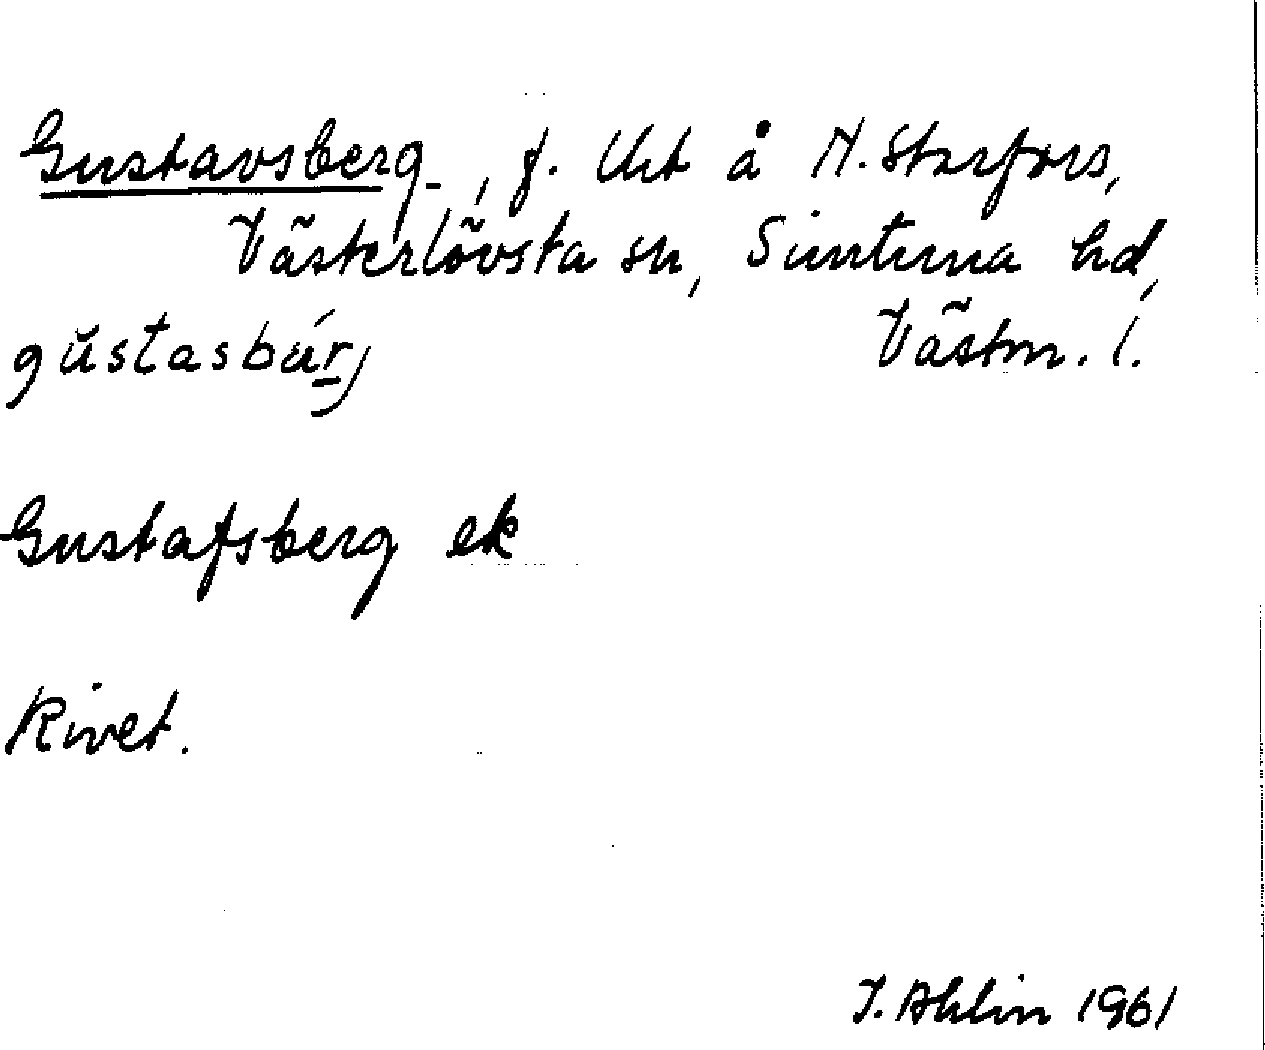 Gustavsberg, f. tht å N. Starfors,
Västerlövsta sn, Simtuna hd,
Västm. l.
gustasbarj
Gustafsberg ek
Rivet.
I. Ahlin 1961